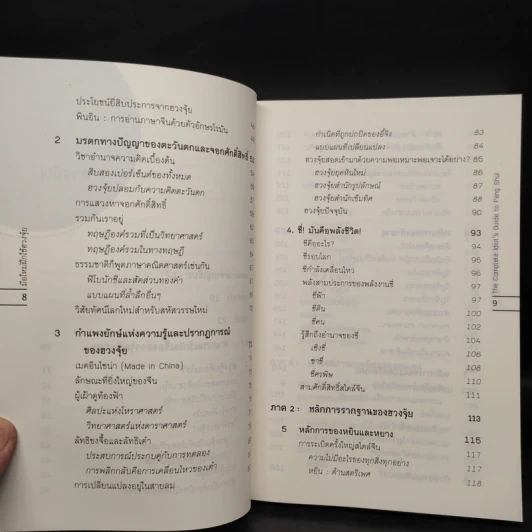 ประโยชน์ยี่สิบประการจากฮวงจุ้ย
พินอิน : การอ่านภาษาจีนด้วยตัวอักษรโรมัน
2 มรดกทางปัญญาของตะวันตกและจอกศักดิ์สิทธิ์
วิชาอำนาจความคิดเบื้องต้น
สิบสองเปอร์เซ็นต์ของทั้งหมด
ฮวงจุ้ยปลอมกับความคิดตะวันตก
การแสวงหาจอกศักดิ์สิทธิ์
รวมกันเราอยู่
ทฤษฎีองค์รวมที่เป็นวิทยาศาสตร์
ทฤษฎีองค์รวมในทางทฤษฎี
ธรรมชาติก็พูดภาษาคณิตศาสตร์เช่นกัน
ฟีโบนักชีและสัดส่วนทองคำ
แบบแผนที่ล้ำลึกอื่นๆ
วิสัยทัศน์โลกใหม่สำหรับสหัสวรรษใหม่
3 กำแพงยักษ์แห่งความรู้และปรากฏการณ์
ของฮวงจุ้ย
เมดอินไชน่า (Made in China)
ลักษณะที่ยิ่งใหญ่ของจีน
ผู้เฝ้าดูท้องฟ้า
ศิลปะแห่งโหราศาสตร์
วิทยาศาสตร์แห่งดาราศาสตร์
ลัทธิขงจื๊อและลัทธิเต๋า
ประสบการณ์ประกบคู่กับการทดลอง
การพลิกกลับคือการเคลื่อนไหวของเต๋า
การเปลี่ยนแปลงอยู่ในสายลม
มือใหม่ฝึกใช้ฮวงจุ้ย
8
กำเนิดที่ถูกปกปิดของอี้จิง 83
แบบแผนที่เปลี่ยนแปลง 84
ฮวงจุ้ยสอดเข้ามาด้วยความพอเหมาะพอเจาะได้อย่างไร? 85
ฮวงจุ้ยยุคหินใหม่ 86
ฮวงจุ้ยสำนักรูปลักษณ์ 86
ฮวงจุ้ยสำนักเข็มทิศ 88
ฮวงจุ้ยปัจจุบัน 90
4. ชี่! มันคือพลังชีวิต! 93
ชี่คืออะไร? 94
ชี่รอบโลก 96
ชี่กำลังเคลื่อนไหว 97
พลังสามประการของพลังงานชี่ 97
ชี่ฟ้า 98
ชี่ดิน 100
ชี่คน 102
รู้สึกถึงอำนาจของชี่ 104
เซิงชี่ 105
ชาชี่ 108
ชี่ศรพิษ 110
สามศักดิ์สิทธิ์สไตล์จีน 111
ภาค 2 : หลักการรากฐานของฮวงจุ้ย 113
5 หลักการของหยินและหยาง 115
การระเบิดครั้งใหญ่สไตล์จีน 116
ความไม่มีอะไรของทุกสิ่งทุกอย่าง 116
หยิน : ด้านสตรีเพศ 118
The Complete Idiot's Guide to Feng Shui
9